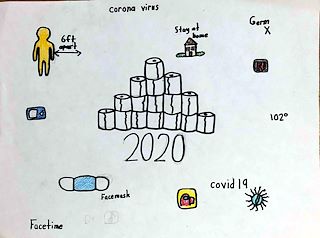 corona virus
6ft
apart
Stay at
home
Germ
X
102°
2020
Facemask
covid 19
Facetime